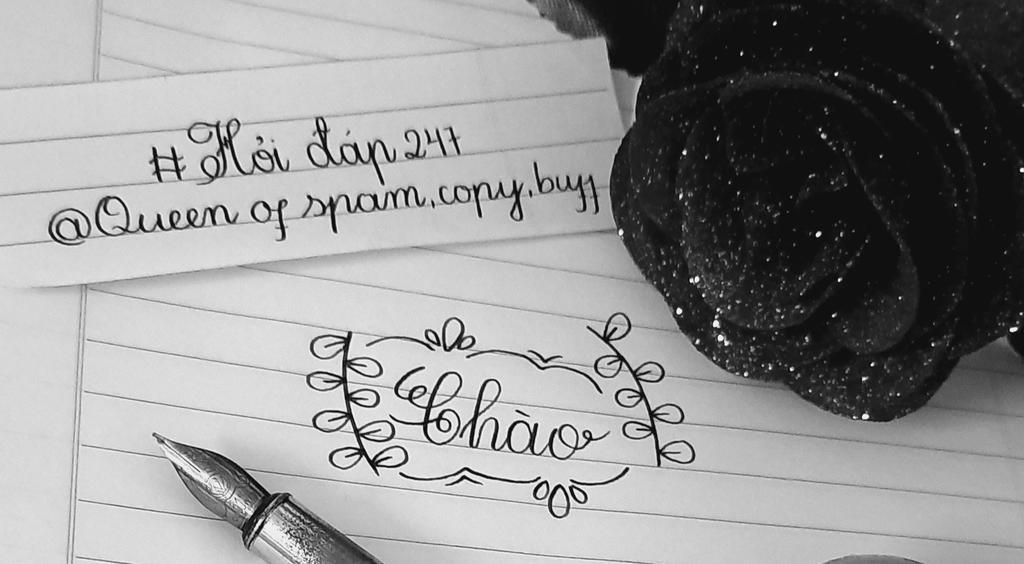 #Hỏi đáp 247
@Queen of spam, copy, buff
Chào